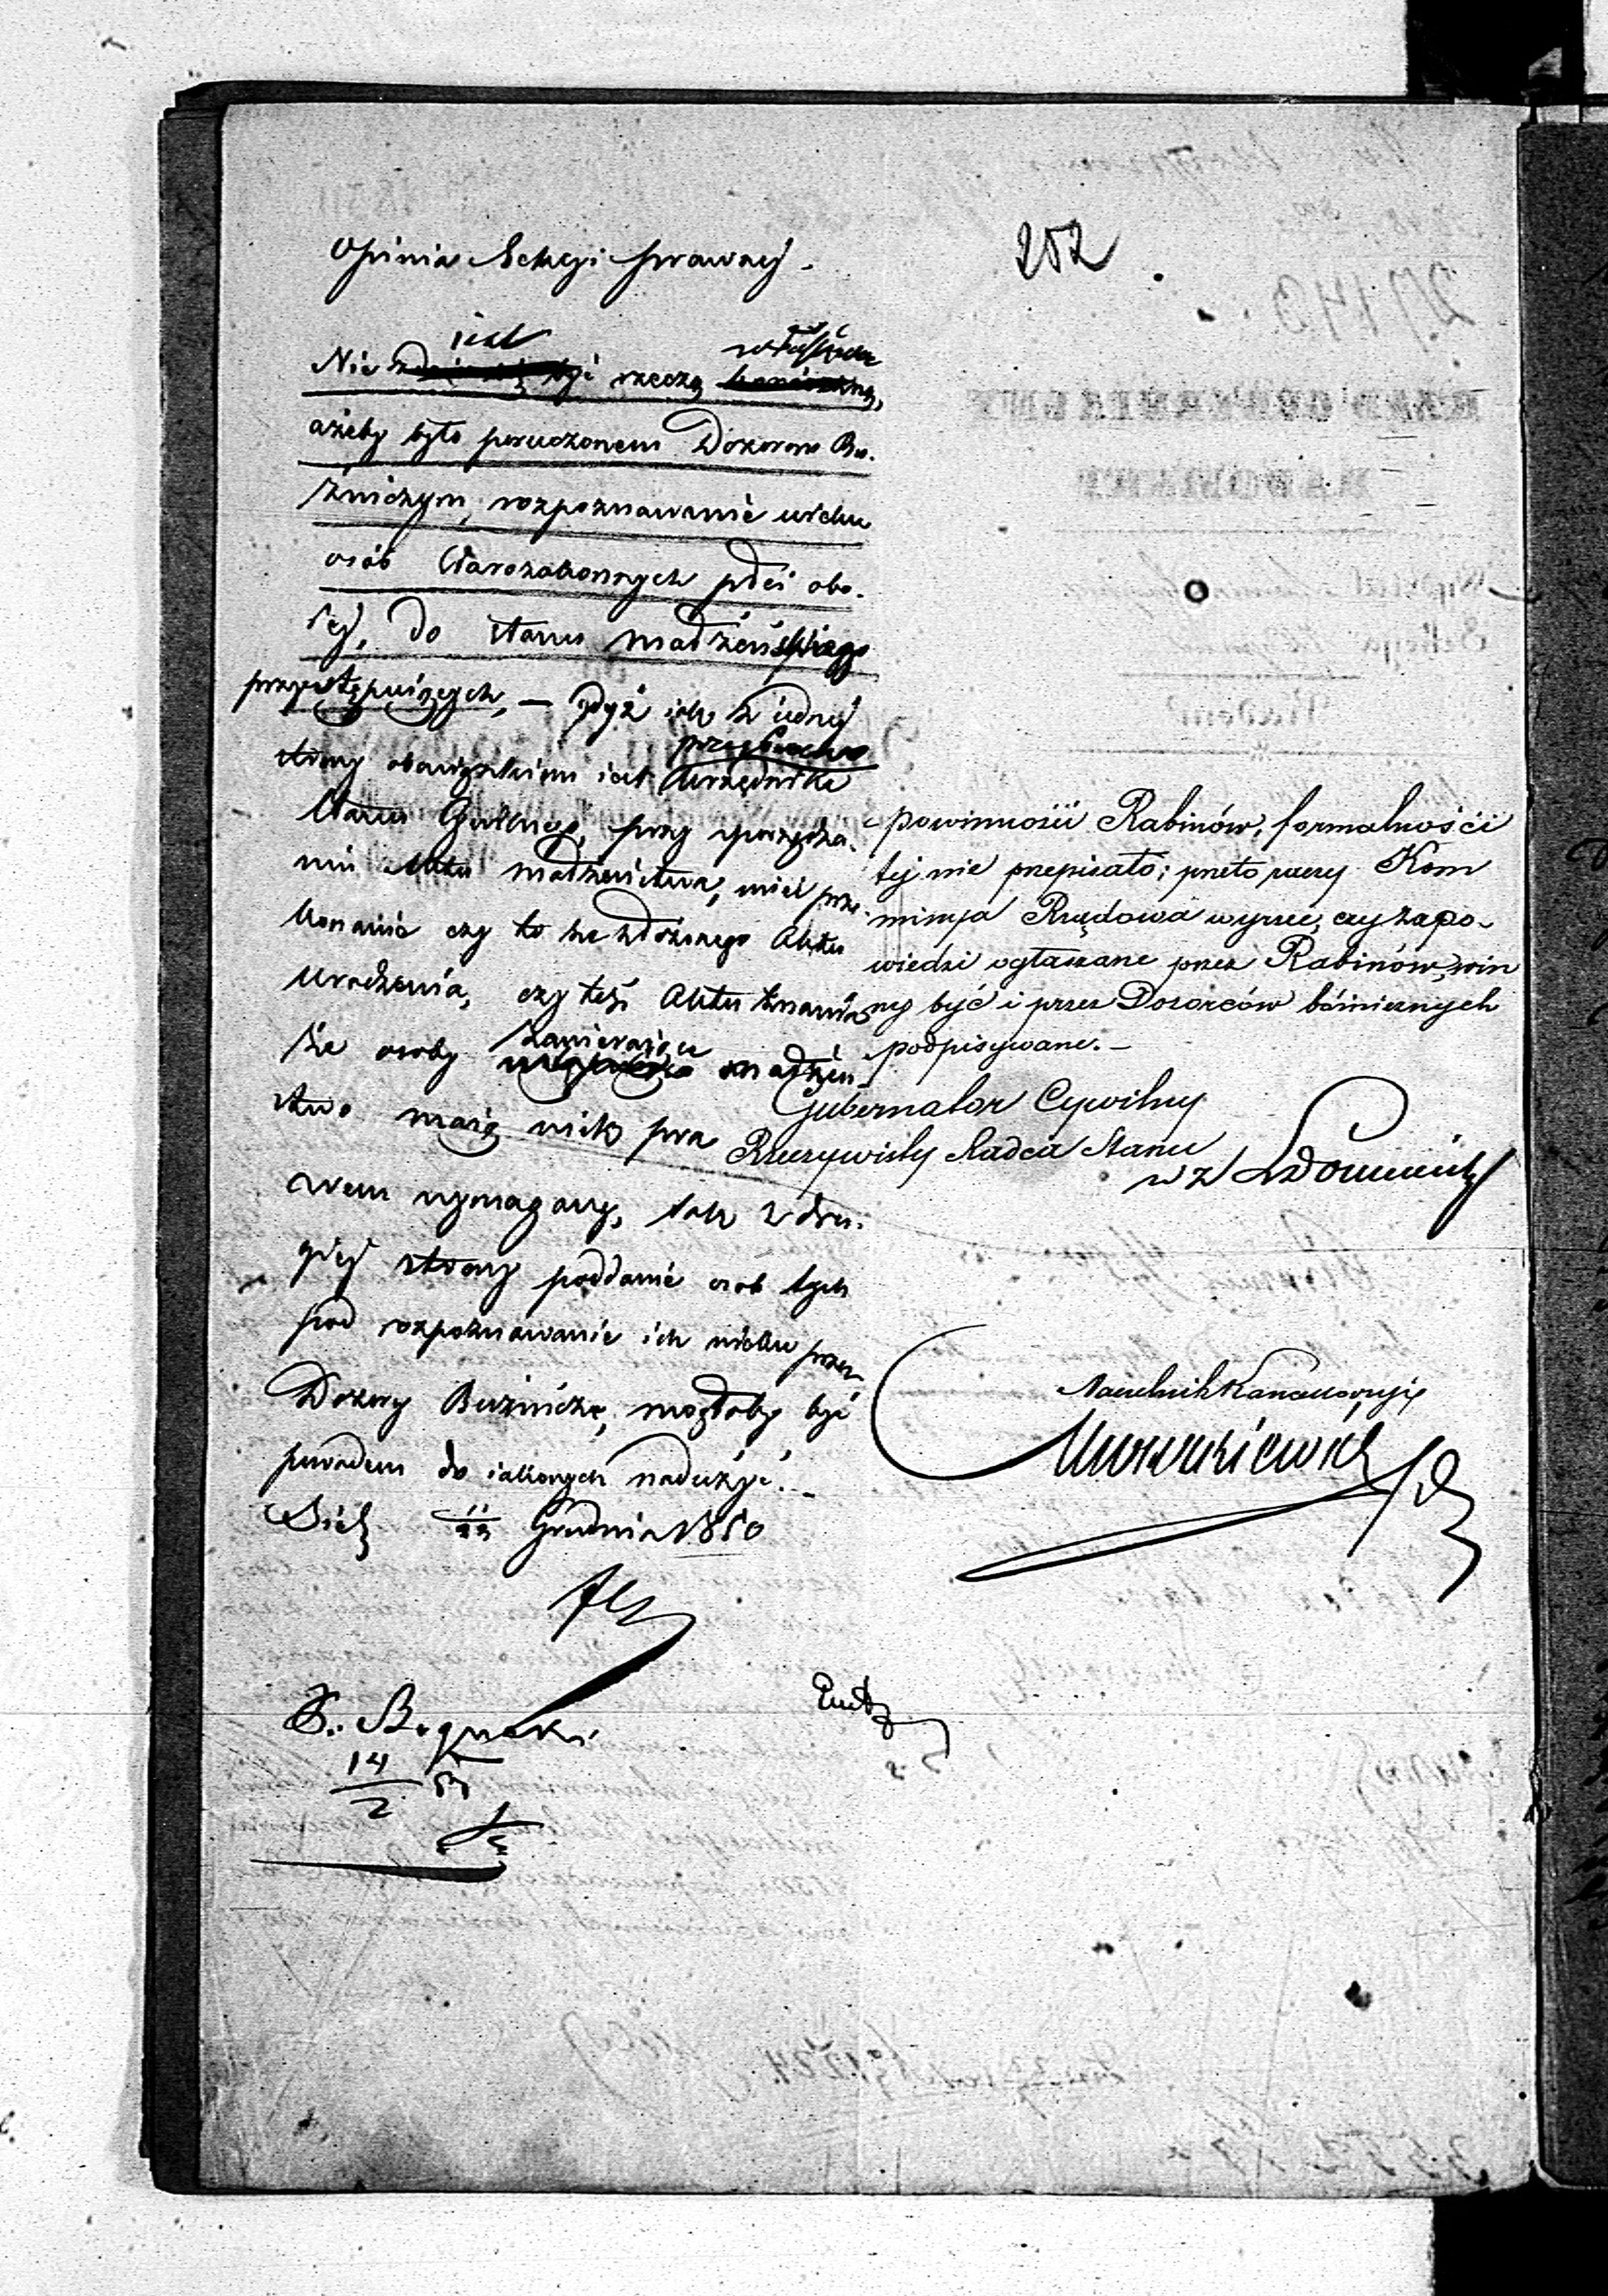 252
Opinia Sekcyi prawnej.
jest właściwą
Nie być rzeczą
ażeby było poruczonem Dozorom Bu-
źniczym, rozpoznawanie wieku
osób Starozakonnych płci obo-
jej, do stanu małżeńskiego
przystępujących, — gdyż jak z jednej
strony obowiązkiem jest Urzędnika
Stanu Cywilnego, przy sporządza-
niu Aktu małżeństwa, mieć prze-
konanie czy to ze złożonego Aktu
Urodzenia, czy też Aktu znania
że osoby zawierające małżeń-
stwo mają wiek pra
wem wymagany, tak z dru-
giej strony poddanie osób tych
pod rozpoznawanie ich wieku przez
Dozory Buźnicze, mogłoby być
powodem do jakowych nadużyć. —
Grudnia 1850
14
2
powinności Rabinów, formalności
tej nie przepisało; przeto raczy Kom
missja Rządowa wyrzec, czy zapo-
wiedzi ogłaszane przez Rabinów, win
ny być i przez Dozorców bóżnicznych
podpisywane. —
Gubernator Cywilny
Rzeczywisty Radca Stanu
w z
Naczelnik Kancellaryi